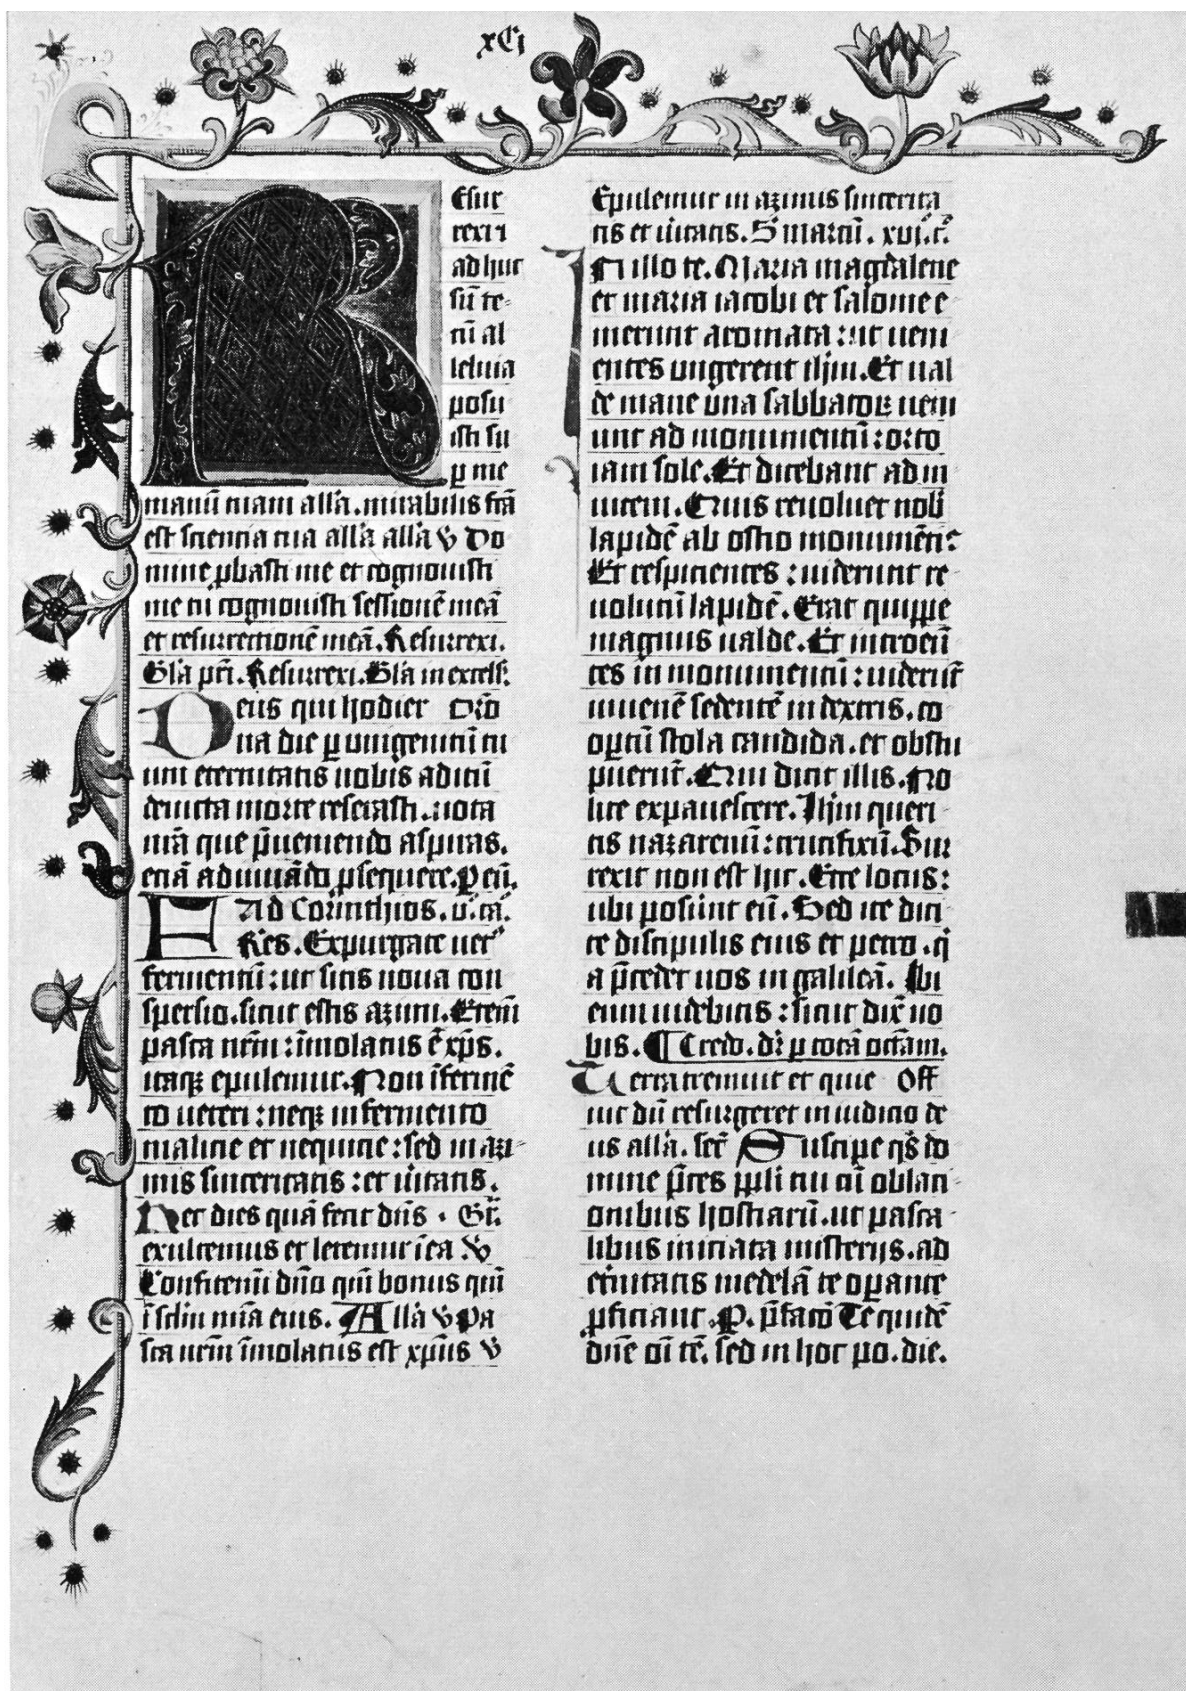 xCi
Resur
rexi i
ad huc
sū te-
cū al
leluia
posu
isti su
ꝑ me
manū tuam allā. mirabilis fcā
est sciencia tua allā allā ꝟ Do
mine ꝓbasti me et cognouisti
me tu cognouisti sessionē meā
et resurrectionē meā. Resurrexi.
Glā pr̄i. Resurrexi. Glā in excels.
Deus qui hodier Or̄o
na die ꝑ vnigenitū tu
um eternitatis nobis aditū
deuicta morte reserasti. uota
nr̄a que p̄ueniendo aspiras.
eciā adiuuādo ꝓsequere. P eū.
Ad Corinthios. v. ca.
FRēs. Expurgate uet9
fermentū : ut sitis noua con
spersio. sicut estis azimi. Etem̄
pasca nr̄m : īmolatus ē xp̄s.
itaqꝫ epulemur. Non ī fermē
to ueteri : neqꝫ in fermento
malicie et nequicie : sed in azi-
mis sinceritatis : et ūitatis.
Hec dies quā fecit dn̄s. Gr̄.
exultemus et letemur ī ea ꝟ
Confitemī dn̄o qm̄ bonus qm̄
ī sc̄lm mīa eius. Allā ꝟ Pa
sca nr̄m īmolatus est xp̄us ꝟ
Epulemur in azimis sincerita
tis et ūitatis. S marcū. xvi. c.
IN illo te. Maria magdalene
et maria iacobi et salome e-
merunt aromata : ut ueni
entes ungerent ihm. Et ual
de mane una sabbatoꝝ ueni
unt ad monumentū : orto
iam sole. Et dicebant ad in
uicem. Quis reuoluet nob
lapidē ab ostio monumēti:
Et respicientes : uiderunt re-
uolutū lapidē. Erat quippe
magnus ualde. Et introeū
tes in monumentū : uiderūt
iuuenē sedentē in dextris. co
oꝑtū stola candida. et obstu
puerūt. Qui dicit illis. No
lite expauescere. Ihm queri
tis nazarenū : crucifixū. Sur
rexit non est hic. Ecce locus :
ubi posūnt eū. Sed ite dici
te discipulis eius et petro. q
a p̄cedet uos in galileā. Ibi
eum uidebitis : sicut dix̄ uo
bis. ¶ Credo. dr̄ ꝑ totā octam̄.
Terra tremuit et quie Off
uit dū resurgeret in iudicio de
us allā. sec̄ Suscipe q̄s do
mine p̄ces ppli tui cū oblati
onibus hostiarū. ut pasca
libus iniciata misterijs. ad
eternitatis medelā te oꝑante
ꝓficiant. P. p̄facō Te quidē
dn̄e oī tē. sed in hoc po. die.